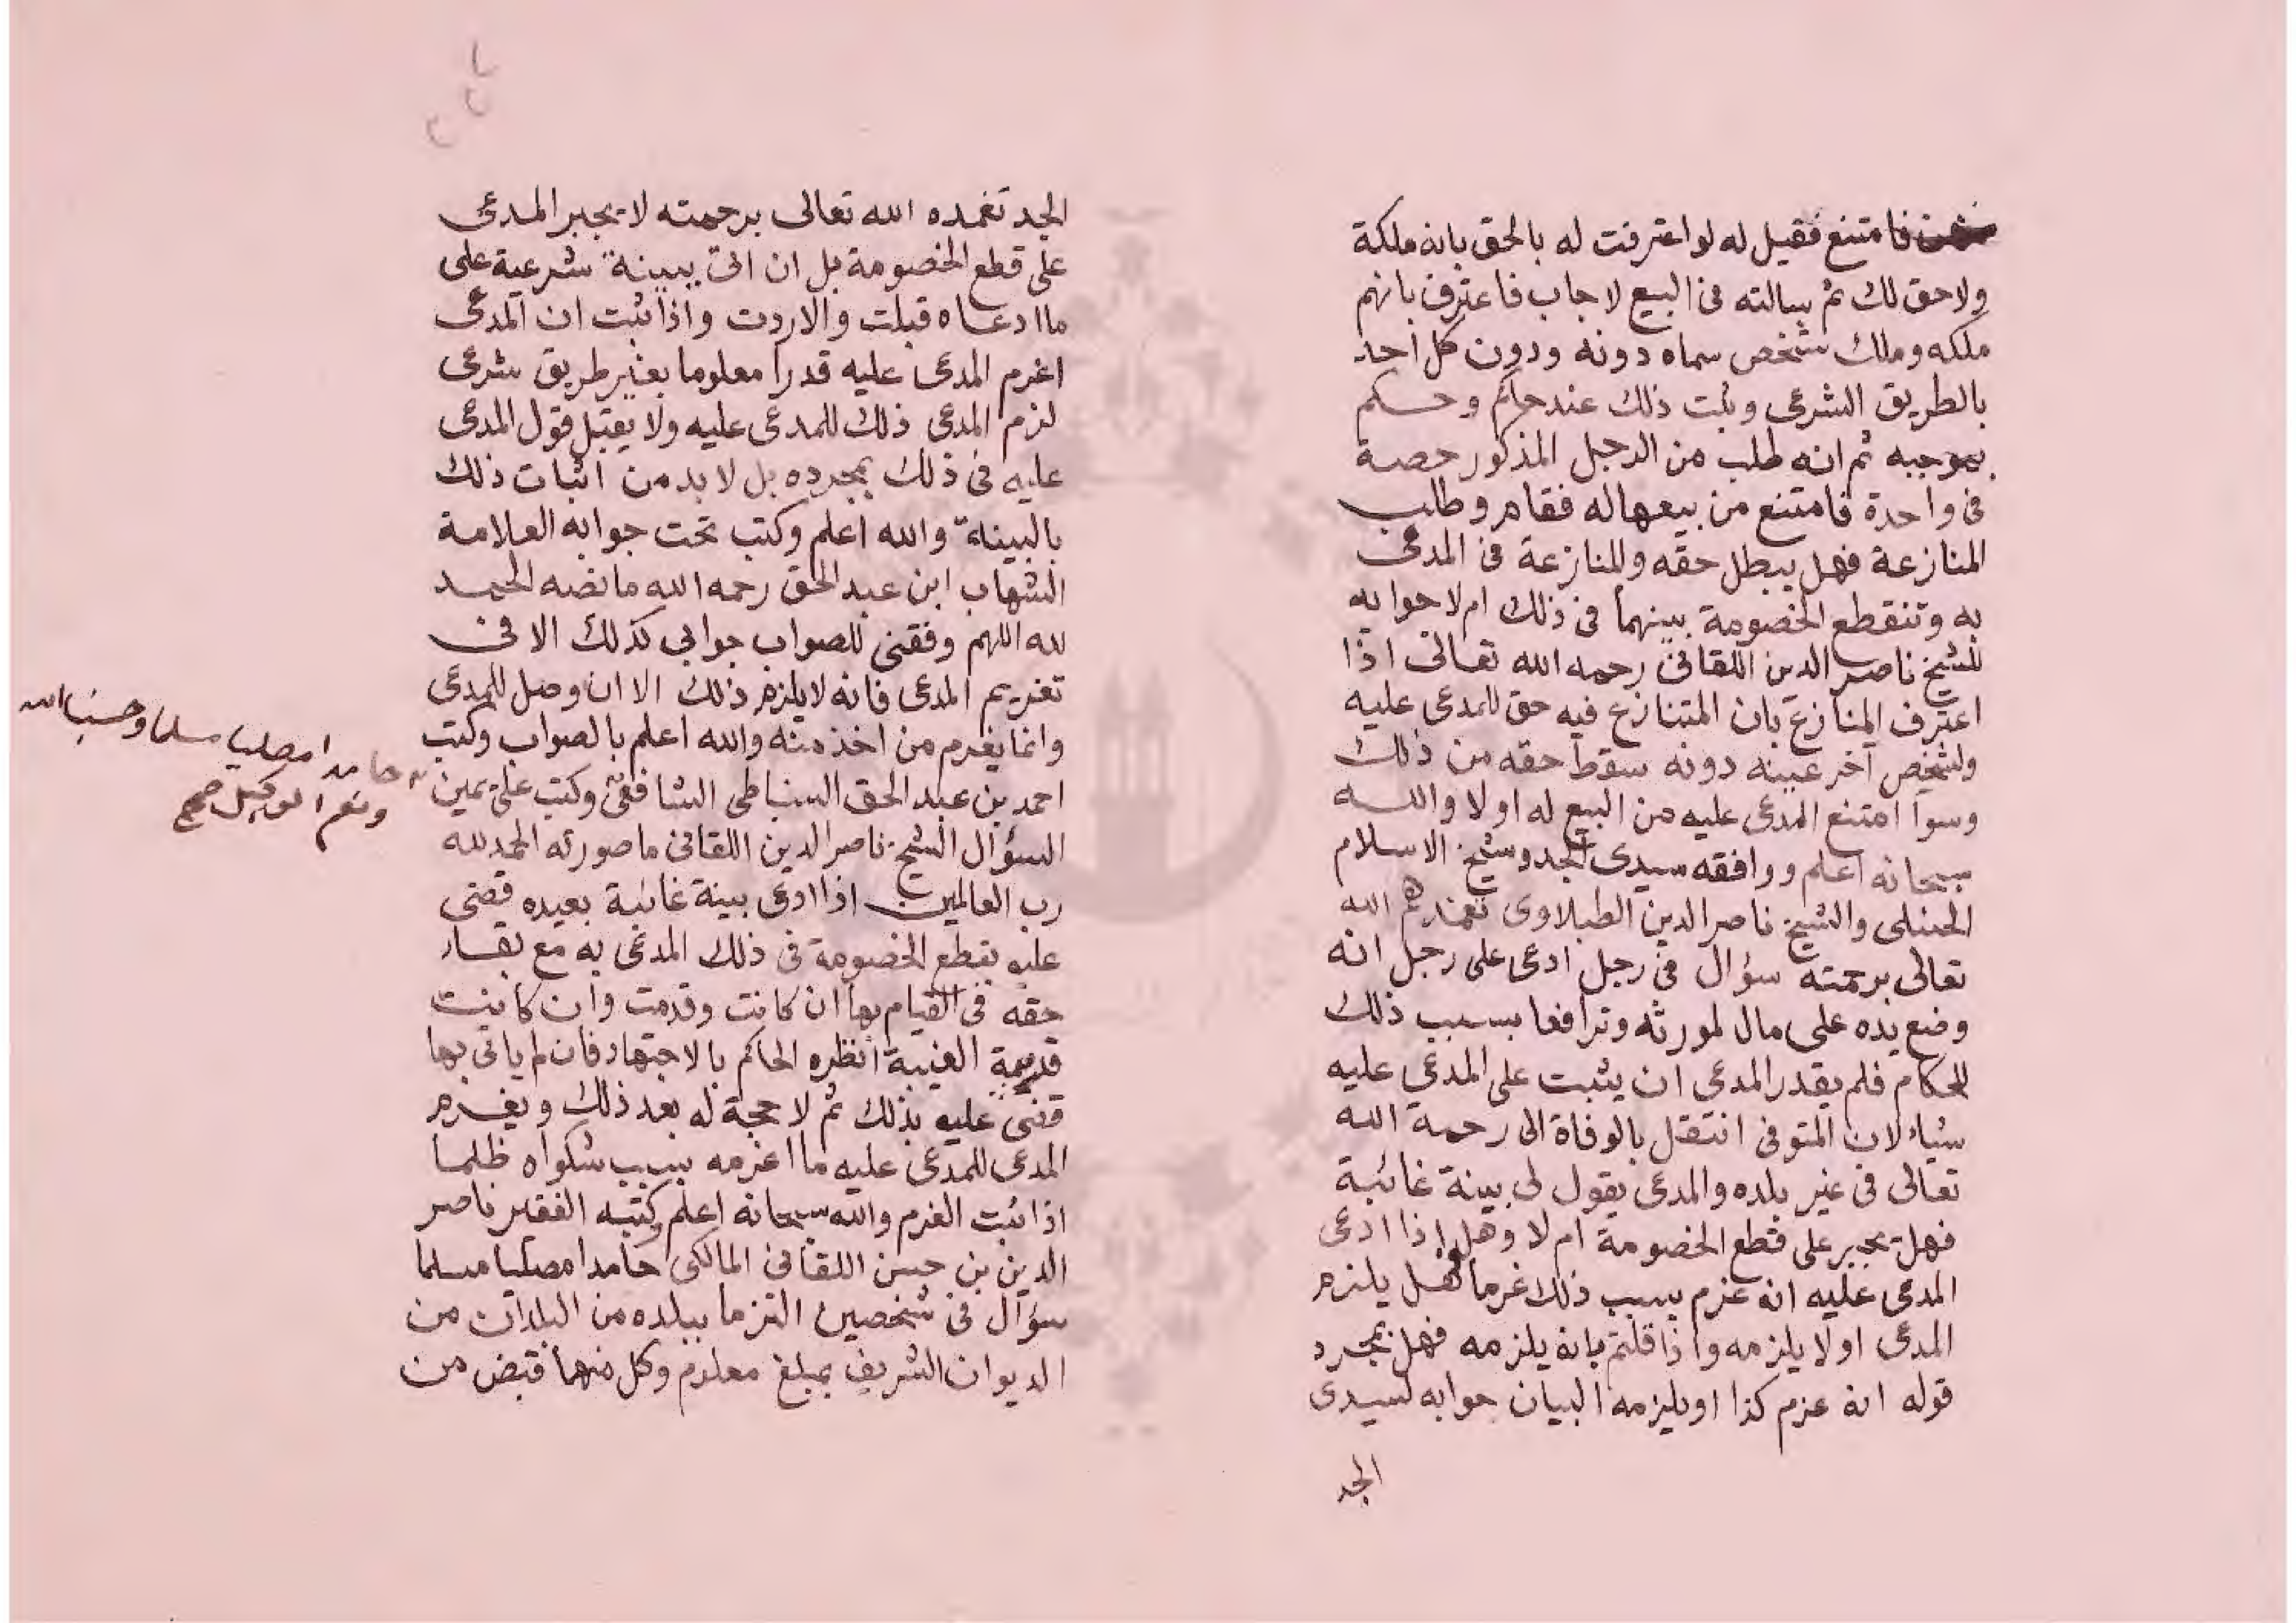 فامتنع فقيل له لو اعترفت له بالحق بانه ملكة
ولا حق لك ثم سالته فى البيع لاجاب فاعترف بانهم
ملكه وملك شخص سماه دونه ودون كل احد
بالطريق الشرعى وثبت ذلك عند حاكم وحكم
بموجبه ثم انه طلب من الرجل المذكور حصة
فى واحدة فامتنع من بيعها له فقام وطلب
المنازعة فهل يبطل حقه والمنازعة فى المدعى
به وتنقطع الخصومة بينهما فى ذلك ام لا جوابه
للشيخ ناصر الدين اللقانى رحمه الله تعالى اذا
اعترف المنازع بان المتنازع فيه حق للمدعى عليه
ولشخص آخر عينه دونه سقط حقه من ذلك
وسوآ امتنع المدعى عليه من البيع له اولا والله
سبحانه اعلم ووافقه سيدى الجد وشيخ الاسلام
الحنبلى والشيخ ناصر الدين الطبلاوى تغمدهم الله
تعالى برحمته سؤال فى رجل ادعى على رجل انه
وضع يده على مال لمورثه وترافعا بسبب ذلك
للحكام فلم يقدر المدعى ان يثبت على المدعى عليه
شياء لان المتوفى انتقل بالوفاة الى رحمة الله
تعالى فى غير بلده والمدعى يقول لى بينة غائبة
فهل يجبر على قطع الخصومة ام لا وهل اذا ادعى
المدعى عليه انه غرم بسبب ذلك غرما فهل يلزم
المدعى او لا يلزمه واذا قلتم بانه يلزمه فهل بمجرد
قوله انه غرم كذا او يلزمه البيان جوابه لسيدى
الجد
الجد تغمده الله تعالى برحمته لا يجبر المدعى
على قطع الخصومة بل ان اتى ببينة شرعية على
ما ادعاه قبلت والا ردت واذا ثبت ان المدعى
اغرم المدعى عليه قدرا معلوما بغير طريق شرعى
لزم المدعى ذلك للمدعى عليه ولا يقبل قول المدعى
عليه فى ذلك بمجرده بل لا بد من اثبات ذلك
بالبينة والله اعلم وكتب تحت جوابه العلامة
الشهاب ابن عبد الحق رحمه الله ما نصه الحمد
لله اللهم وفقنى للصواب جوابى كذلك الا فى
تغريم المدعى فانه لا يلزم ذلك الا ان وصل للمدعى
وانما يغرم من اخذ منه والله اعلم بالصواب وكتب
احمد بن عبد الحق السنباطى الشافعى وكتب على يمين
حامدا مصليا مسلما وحسبنا الله
ونعم الوكيل صح
السؤال الشيخ ناصر الدين اللقانى ما صورته الحمد لله
رب العالمين اذا ادعى بينة غائبة بعيده قضى
عليه بقطع الخصومة فى ذلك المدعى به مع بقاء
حقه فى القيام بها ان كانت وقدمت وان كانت
قريبة الغيبة انظره الحاكم بالاجتهاد فان لم ياتى بها
قضى عليه بذلك ثم لا حجة له بعد ذلك ويغرم
المدعى للمدعى عليه ما اغرمه بسبب شكواه ظلما
اذا ثبت الغرم والله سبحانه اعلم وكتبه الفقير ناصر
الدين بن حسن اللقانى المالكى حامدا مصليا مسلما
سؤال فى شخصين التزما ببلده من البلدان من
الديوان الشريف بمبلغ معلوم وكل منهما قبض من